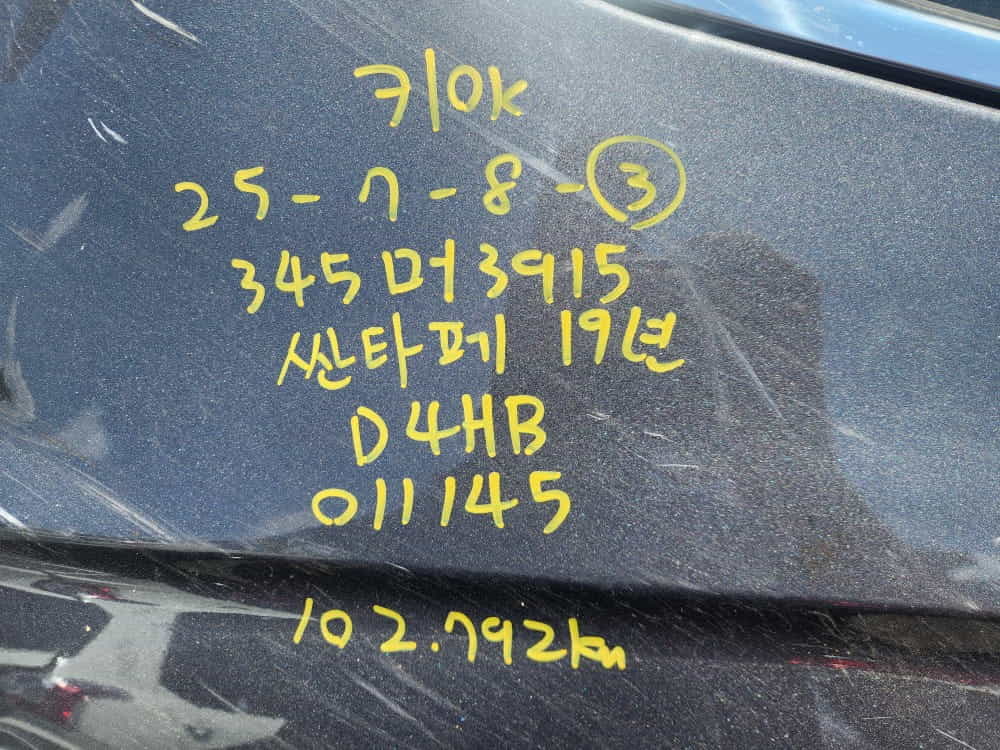 키OK
25-7-8-③
345머3915
싼타페 19년
D4HB
011145
102.792km